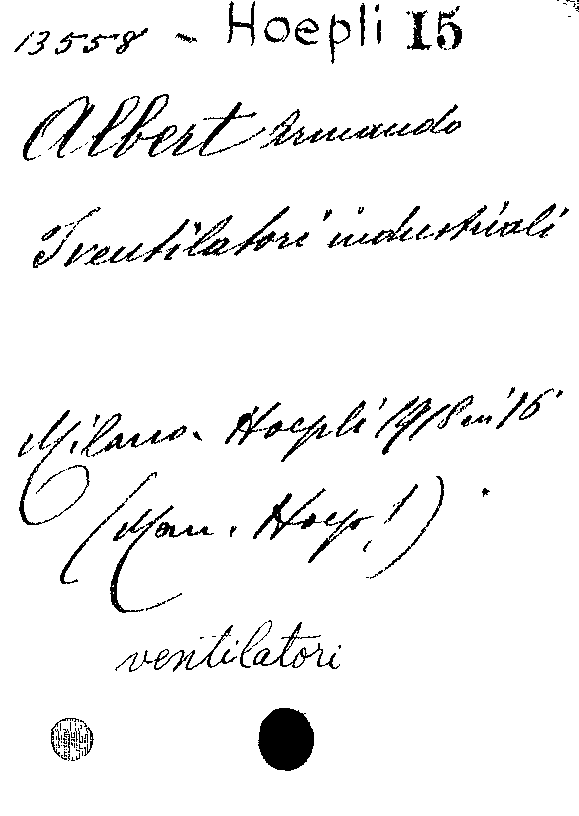 13558 - Hoepli 15
Albert Armando
I ventilatori industriali
Milano. Hoepli 1918 in 16°
(Man. Hoep.!)
ventilatori